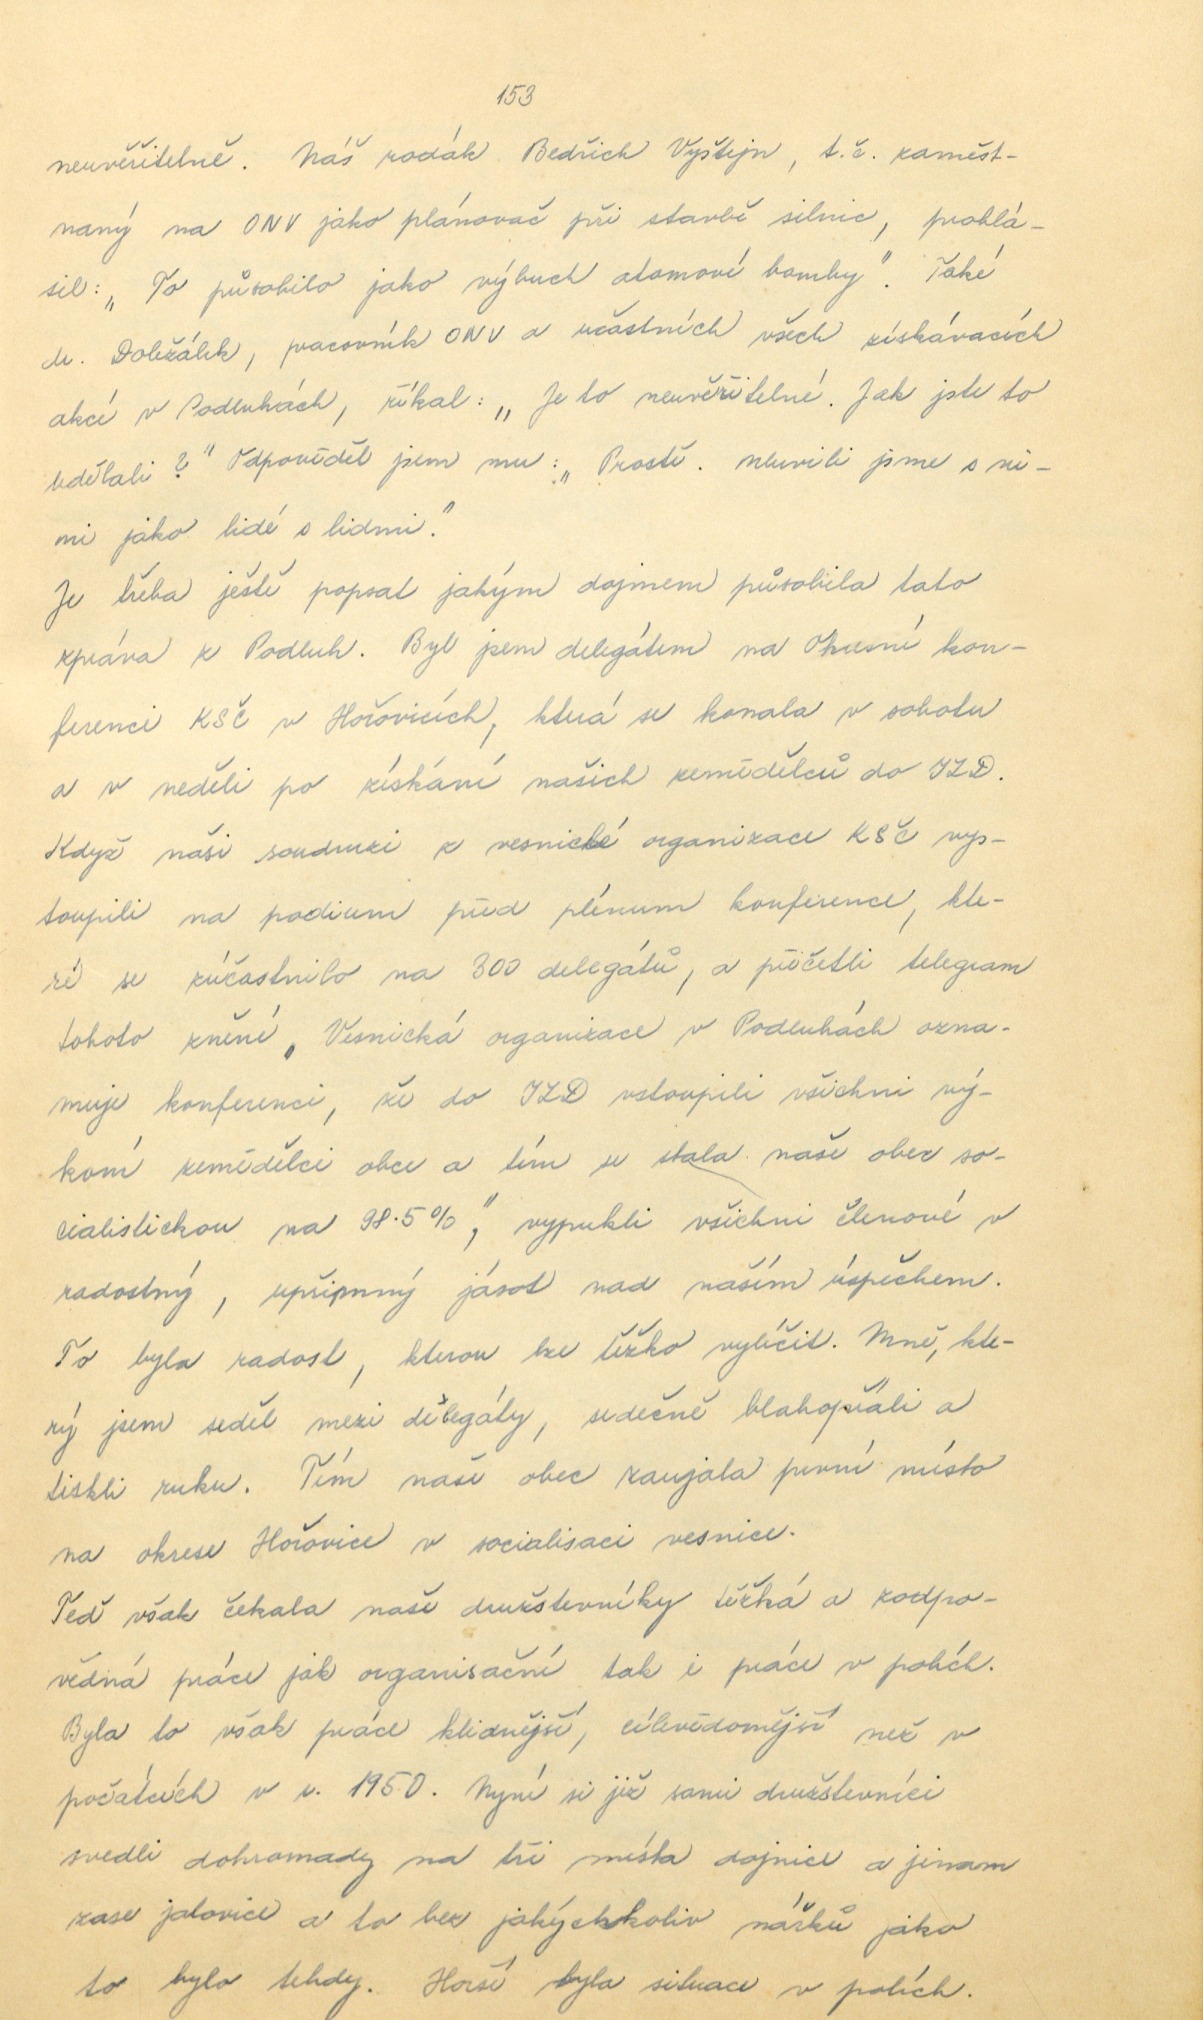 153
neuvěřitelně. Náš rodák Bedřich Vyštejn, t.č. zaměst-
naný na ONV jako plánovač při stavbě silnic, prohlá-
sil: „To působilo jako výbuch atomové bomby". Také
dr. Doležálek, pracovník ONV a účastních všech získávacích
akcí v Podluhách, říkal: „Je to neuvěřitelné. Jak jste to
udělali?" Odpověděl jsem mu: „Prostě. Mluvili jsme s ni-
mi jako lidé s lidmi."
Je třeba ještě popsat jakým dojmem působila tato
zpráva z Podluh. Byl jsem delegátem na Okresní kon-
ferenci KSČ v Hořovicích, která se konala v sobotu
a v neděli po získání našich zemědělců do JZD.
Když naši soudruzi z vesnické organizace KSČ vys-
toupili na podium před plénum konference, kte-
ré se zúčastnilo na 300 delegátů, a přečetli telegram
tohoto znění „Vesnická organizace v Podluhách ozna-
muje konferenci, že do JZD vstoupili všichni vý-
koní zemědělci obce a tím se stala naše obec so-
cialistickou na 98.5%", vypukli všichni členové v
radostný, upřipnný jásot nad naším úspěchem.
To byla radost, kterou lze těžko vylíčit. Mně, kte-
rý jsem seděl mezi delegáty, srdečně blahopřáli a
tiskli ruku. Tím naše obec zaujala první místo
na okrese Hořovice v socialisaci vesnice.
Teď však čekala naše družstevníky těžká a zodpo-
vědná práce jak organisační tak i práce v polích.
Byla to však práce klidnější, cílevědomější než v
počátcích v r. 1950. Nyní si již sami družstevníci
svedli dohromady na tři místa dojnice a jinam
zase jalovice a to bez jakýchkoliv nářků jako
to bylo tehdy. Horší byla situace v polích.